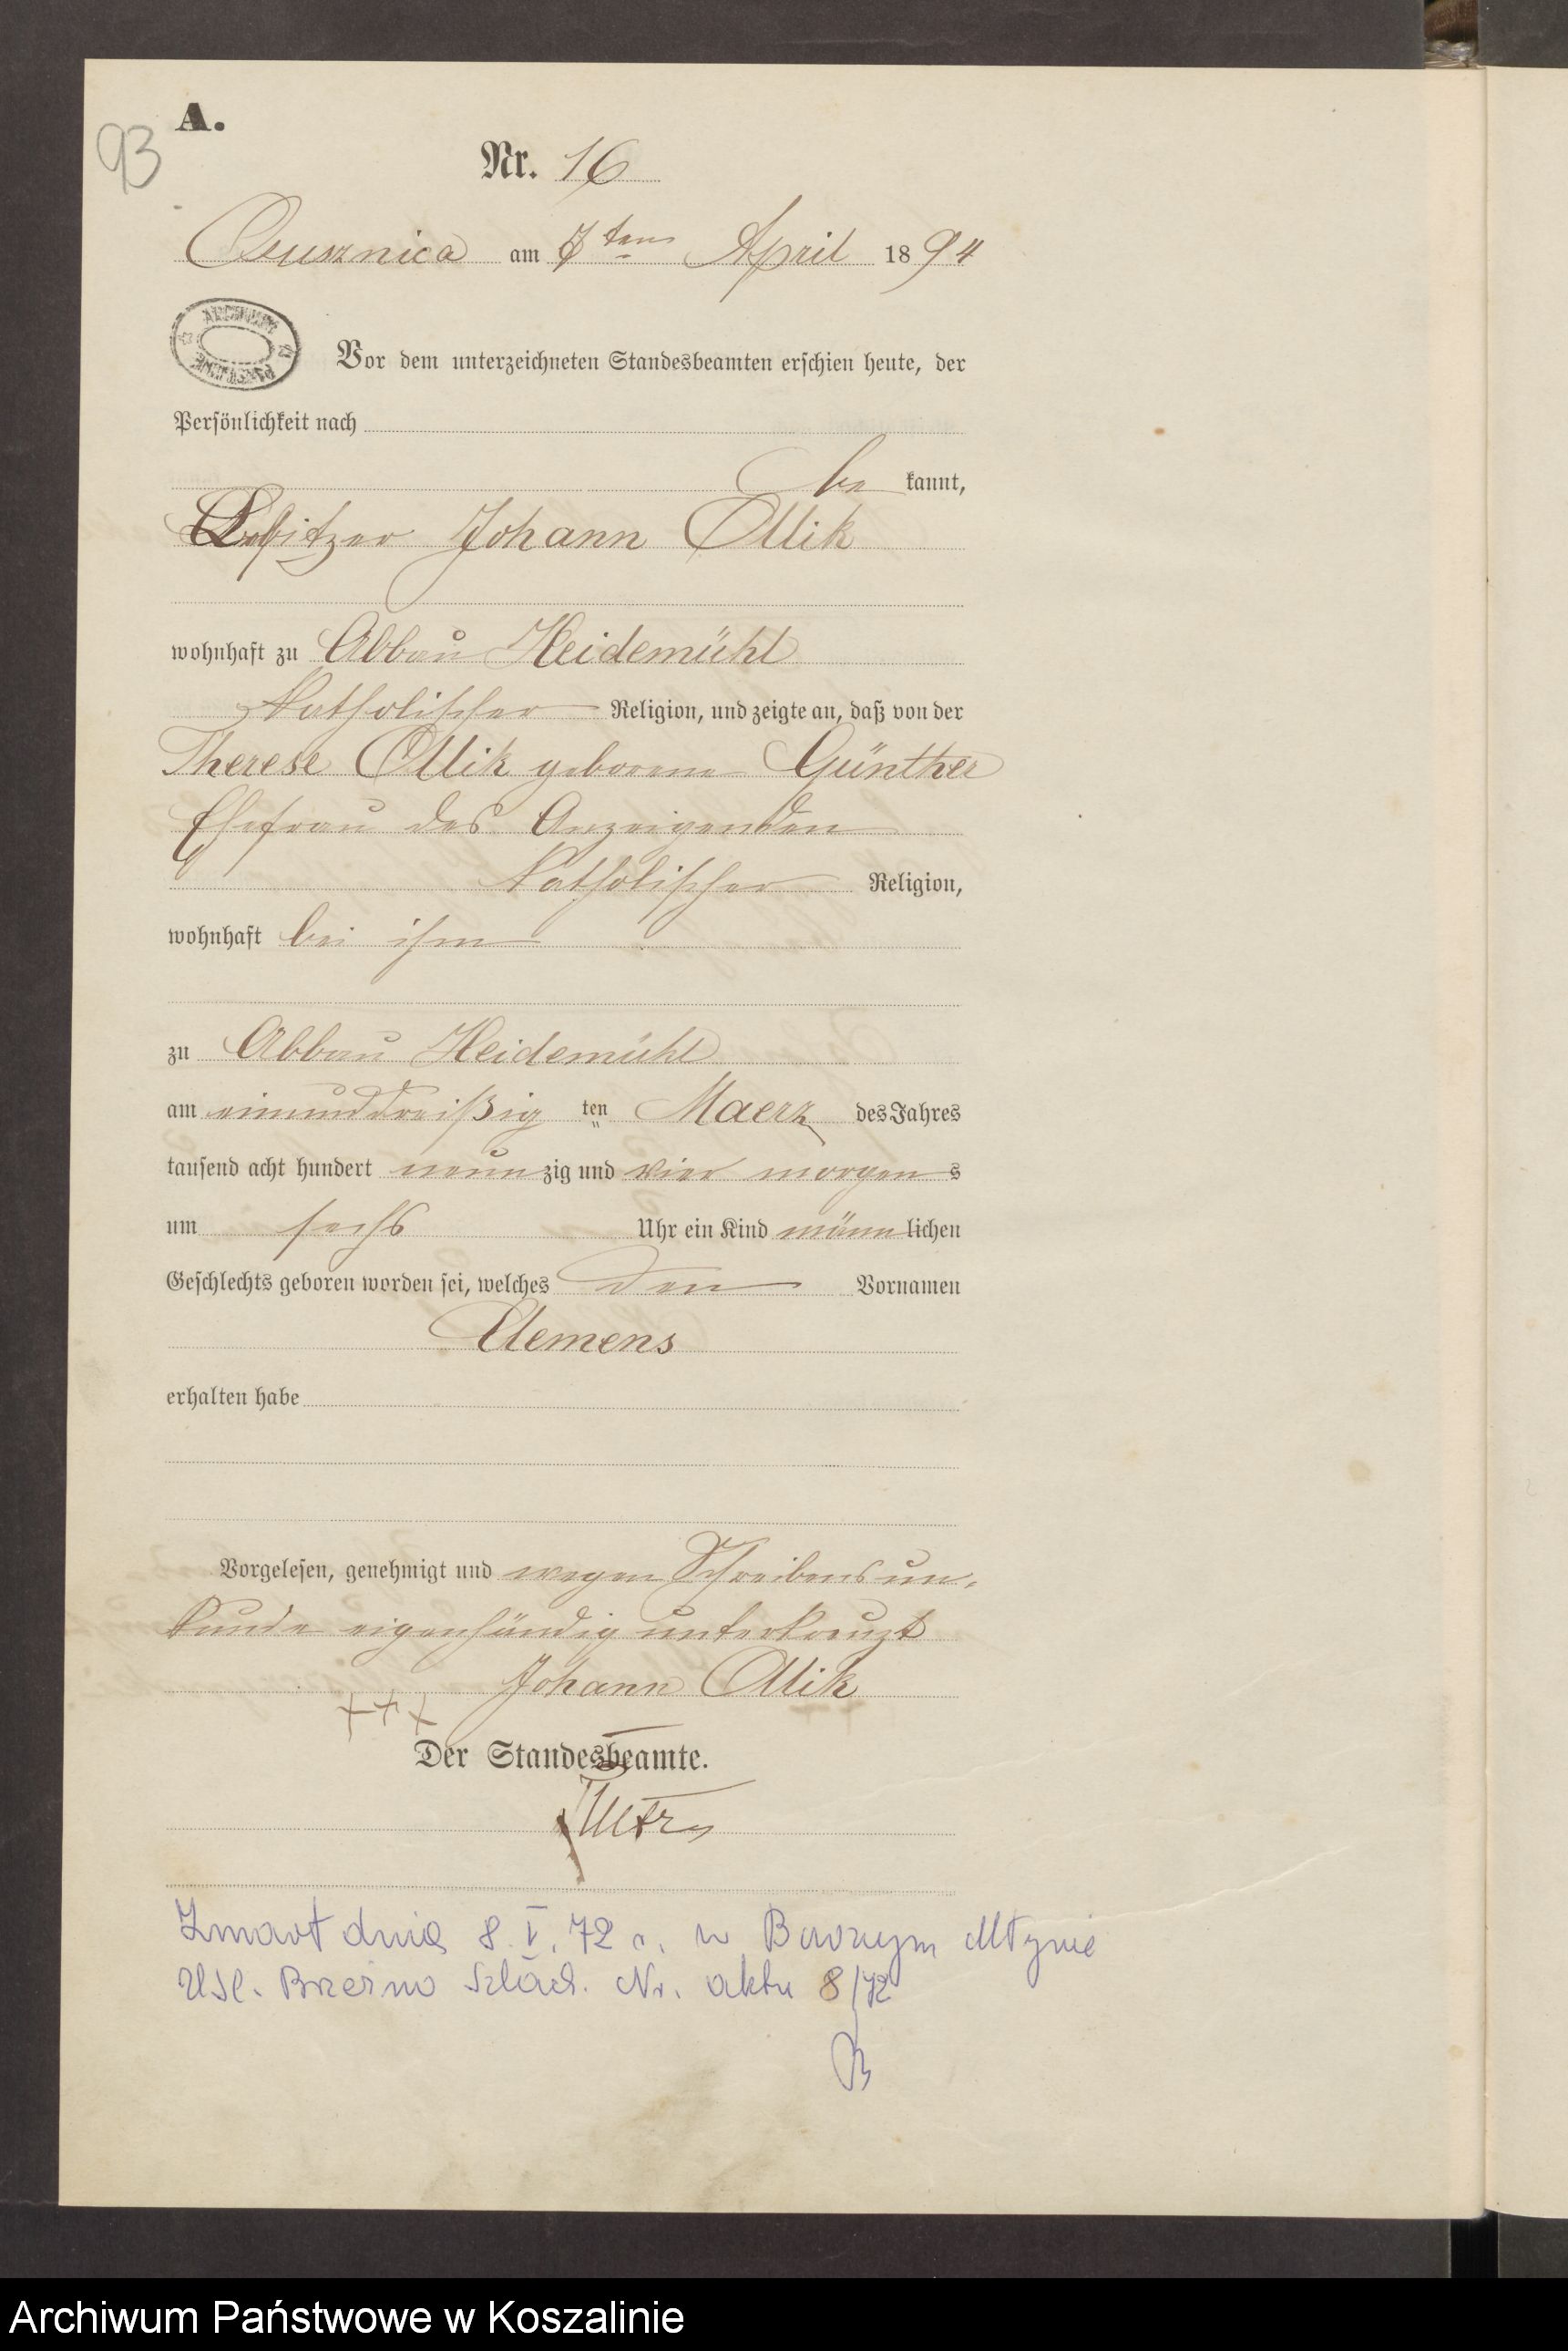 A.
93
Nr. 16
Ossusznica am 7 ten April 1894
ARCHIWUM PAŃSTWOWE
Vor dem unterzeichneten Standesbeamten erschien heute, der
Persönlichkeit nach
be kannt,
Besitzer Johann Ollik
wohnhaft zu Abbau Heidemühl
katholischer Religion, und zeigte an, daß von der
Therese Ollik geborene Günther
Ehefrau des Anzeigenden
katholischer Religion,
wohnhaft bei ihm
zu Abbau Heidemühl
am einunddreißig ten Maerz des Jahres
tausend acht hundert neunzig und vier morgens
um sechs Uhr ein Kind männlichen
Geschlechts geboren worden sei, welches den Vornamen
Clemens
erhalten habe
Vorgelesen, genehmigt und wegen Schreibensun-
kunde eigenhändig unterkreuzt
+++ Johann Ollik
Der Standesbeamte.
Zmarł dnia 8.V.72 r. w Borowym Młynie
USC. Brzeźno Szlach. Nr. aktu 8/72
Archiwum Państwowe w Koszalinie